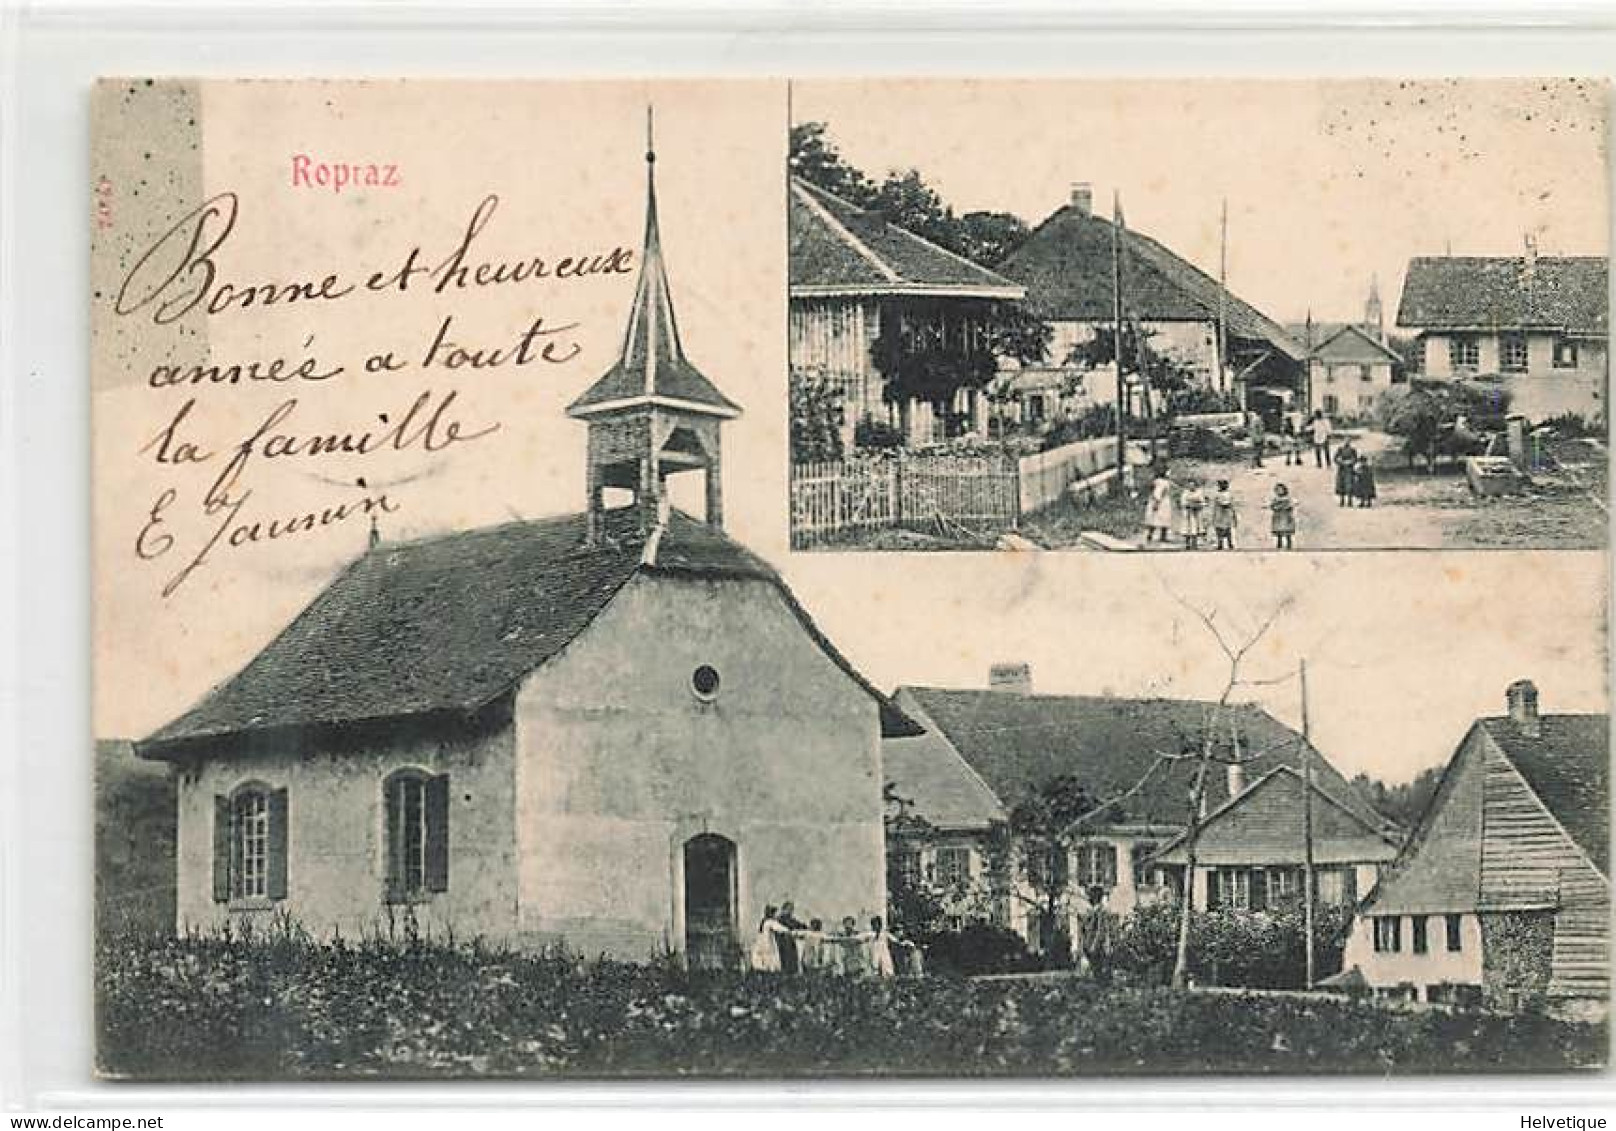 Ropraz
Bonne et heureux
année a toute
la famille
E Jaunin
delcampe.net
Helvetique